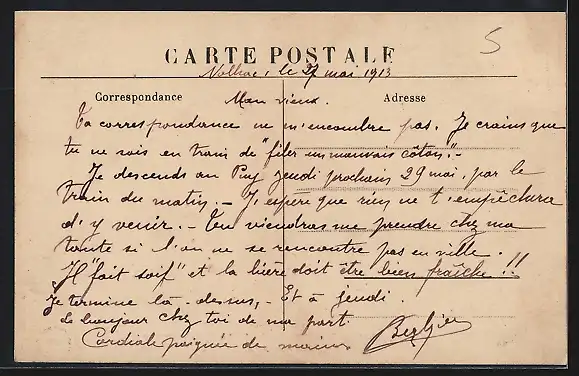 5
CARTE POSTALE
Nolhac, le 27 mai 1913
Correspondance Mon vieux. Adresse
Ta correspondance ne m'encombre pas. Je crains que
tu ne sois en train de "filer un mauvais côton".-
Je descends au Puy jeudi prochain 29 mai, par le
train du matin. - J'espère que rien ne t'empêchera
d'y venir. - Tu viendras me prendre chez ma
tante si l'on ne se rencontre pas en ville.
Il "fait soif" et la bière doit être bien fraîche !!
Je termine là-dessus, - Et à jeudi.
Le bonjour chez toi de ma part
Cordiale poignée de mains